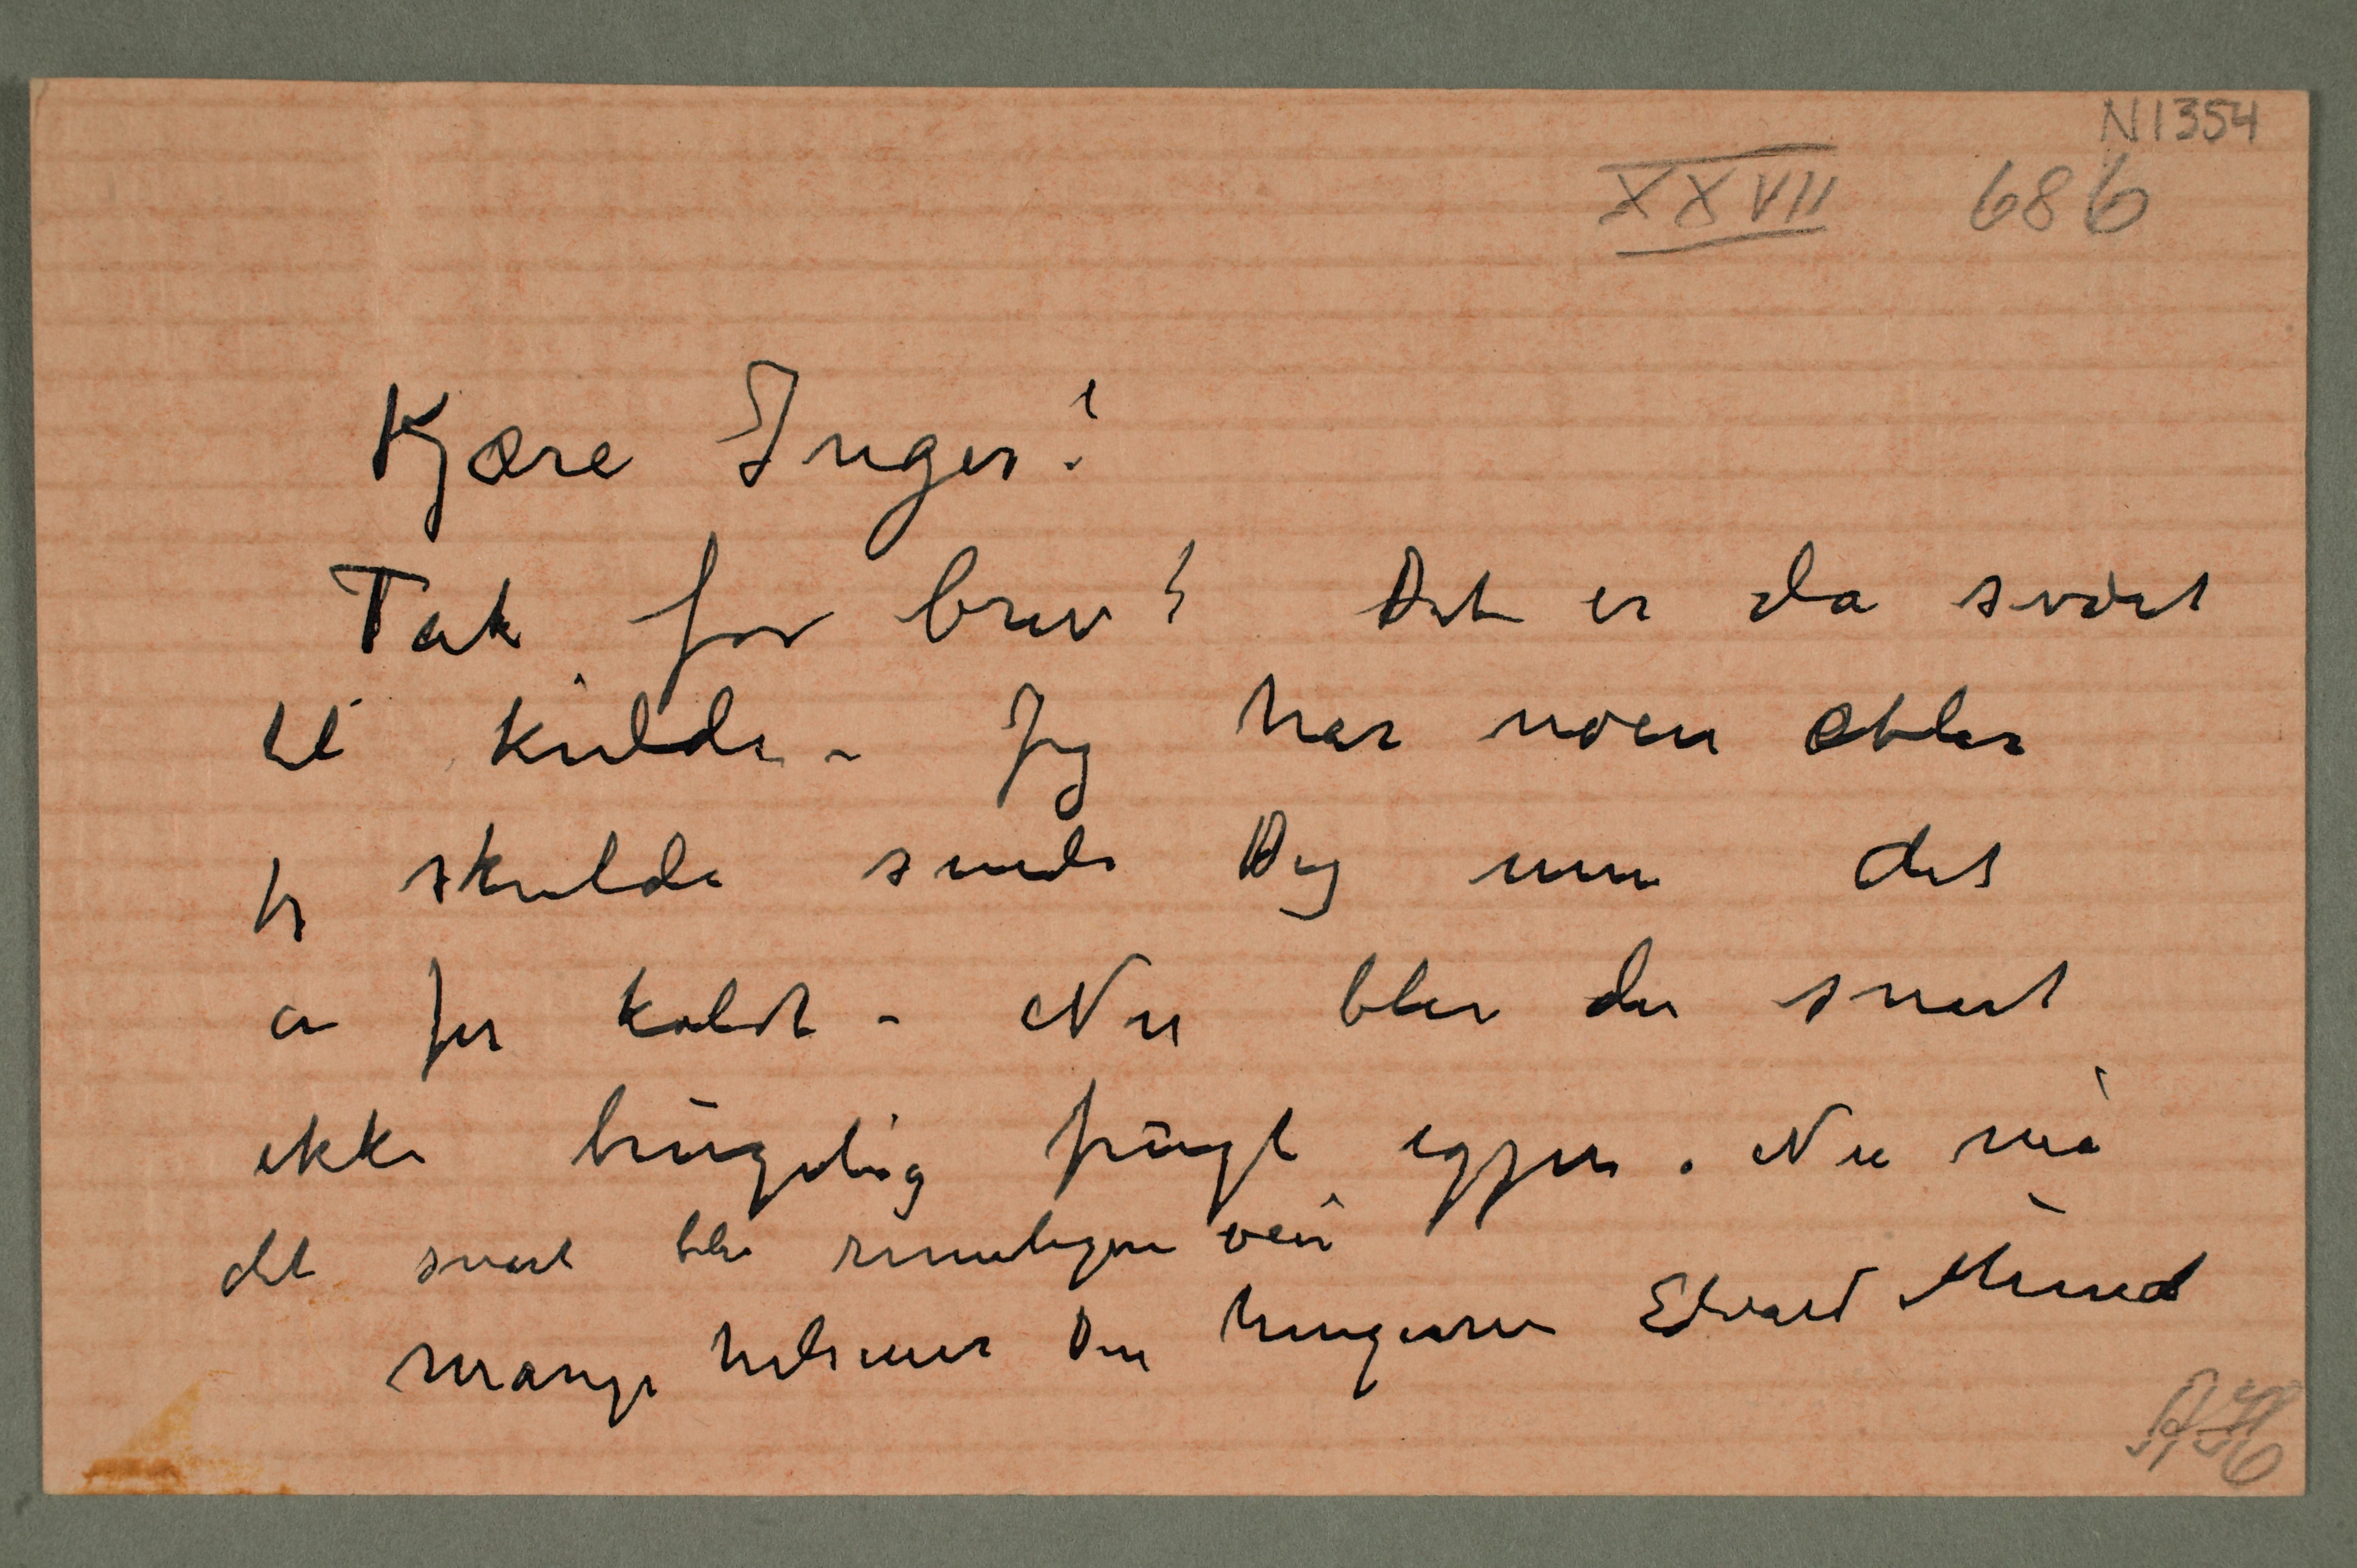 N1354
XXVII 686
Kjære Inger!
Tak for brev! Det er da svært
til kulde – Jeg har noen æbler
jeg skulde sende Dig men det
er for koldt – Nu blir der snart
ikke brugelig frugt igjen. Nu må
det snart bli rimeligere veir
Mange hilsener Din hengivne Edvard Munch